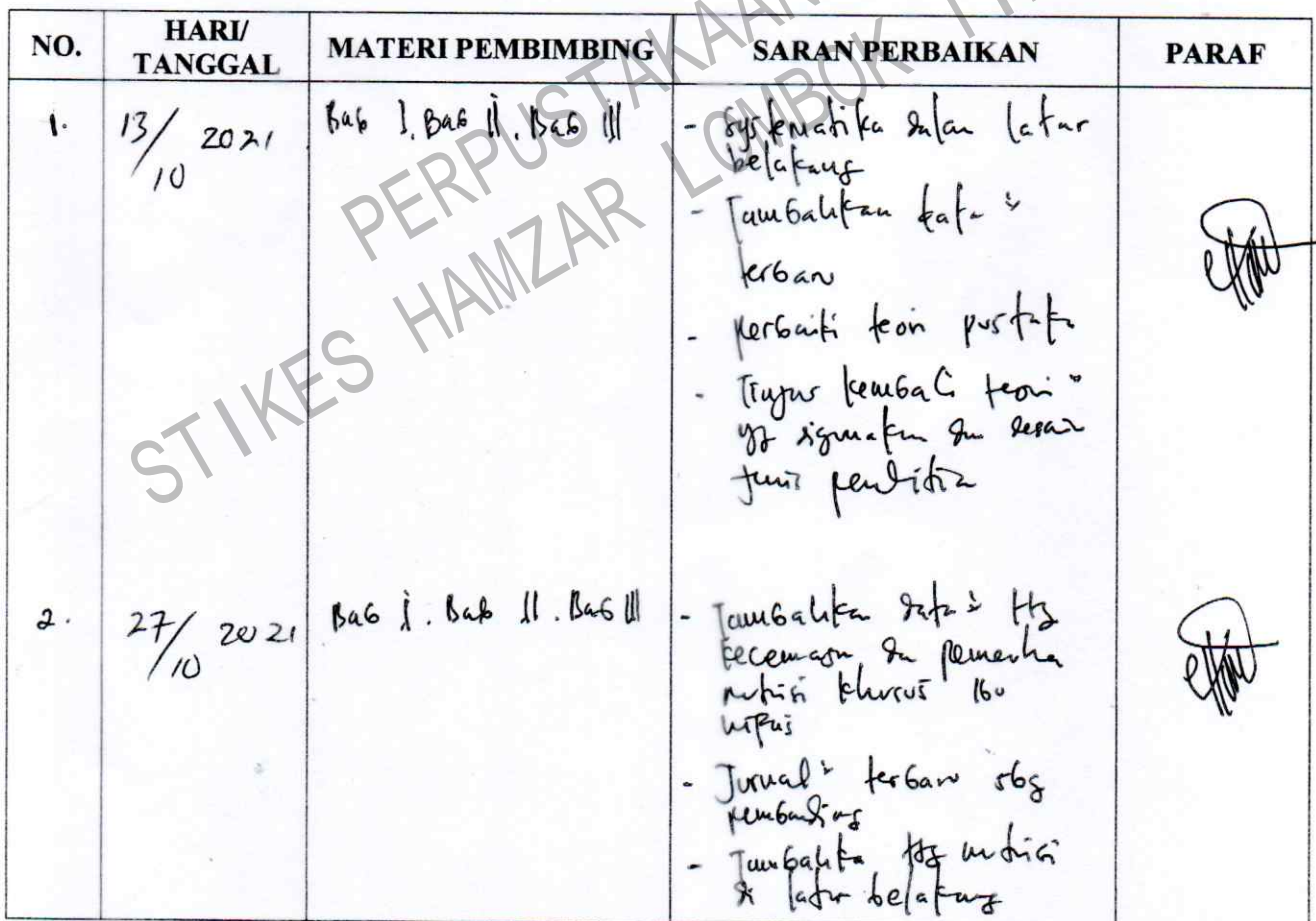 NO.
HARI/
TANGGAL
MATERI PEMBIMBING
SARAN PERBAIKAN
PARAF
PERPUSTAKAAN
STIKES HAMZAR LOMBOK
1.
13/10 2021
Bab I. Bab II. Bab III
- Systematika dalam latar
belakang
- Tambahkan data"
terbaru
- perbaiki teori pustaka
- Tinjau kembali teori"
yg digunakan dan desain
jenis penelitian
2.
27/10 2021
Bab I. Bab II. Bab III
- Tambahkan data" ttg
kecemasan dan
nutrisi khusus ibu
nifas
- Jurnal" terbaru sbg
pembanding
- Tambahkan ttg nutrisi
di latar belakang